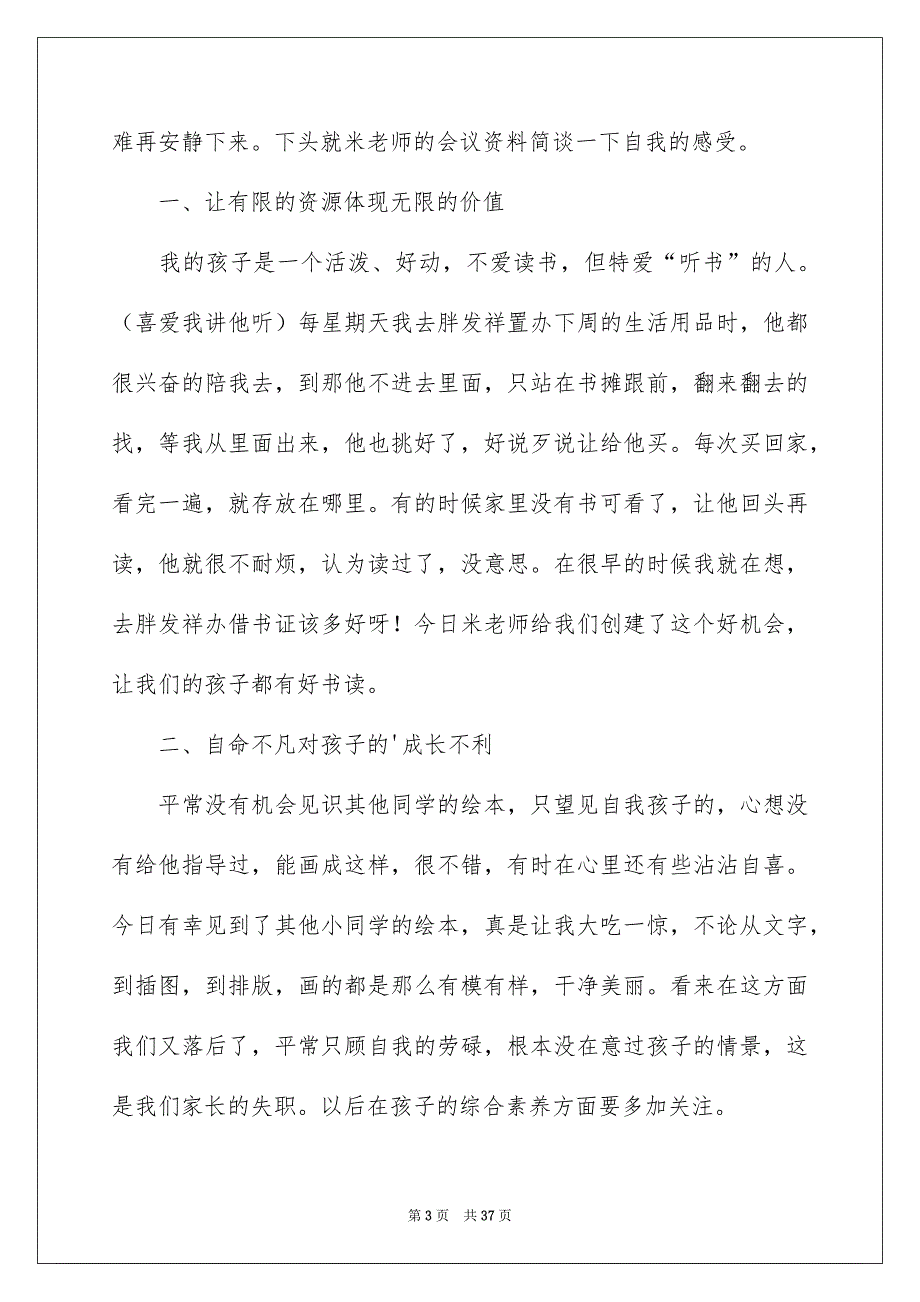 难再安静下来。下头就米老师的会议资料简谈一下自我的感受。
一、让有限的资源体现无限的价值
我的孩子是一个活泼、好动，不爱读书，但特爱“听书”的人。
（喜爱我讲他听）每星期天我去胖发祥置办下周的生活用品时，他都
很兴奋的陪我去，到那他不进去里面，只站在书摊跟前，翻来翻去的
找，等我从里面出来，他也挑好了，好说歹说让给他买。每次买回家，
看完一遍，就存放在哪里。有的时候家里没有书可看了，让他回头再
读，他就很不耐烦，认为读过了，没意思。在很早的时候我就在想，
去胖发祥办借书证该多好呀！今日米老师给我们创建了这个好机会，
让我们的孩子都有好书读。
二、自命不凡对孩子的'成长不利
平常没有机会见识其他同学的绘本，只望见自我孩子的，心想没
有给他指导过，能画成这样，很不错，有时在心里还有些沾沾自喜。
今日有幸见到了其他小同学的绘本，真是让我大吃一惊，不论从文字，
到插图，到排版，画的都是那么有模有样，干净美丽。看来在这方面
我们又落后了，平常只顾自我的劳碌，根本没在意过孩子的情景，这
是我们家长的失职。以后在孩子的综合素养方面要多加关注。
第 3 页 共 37 页